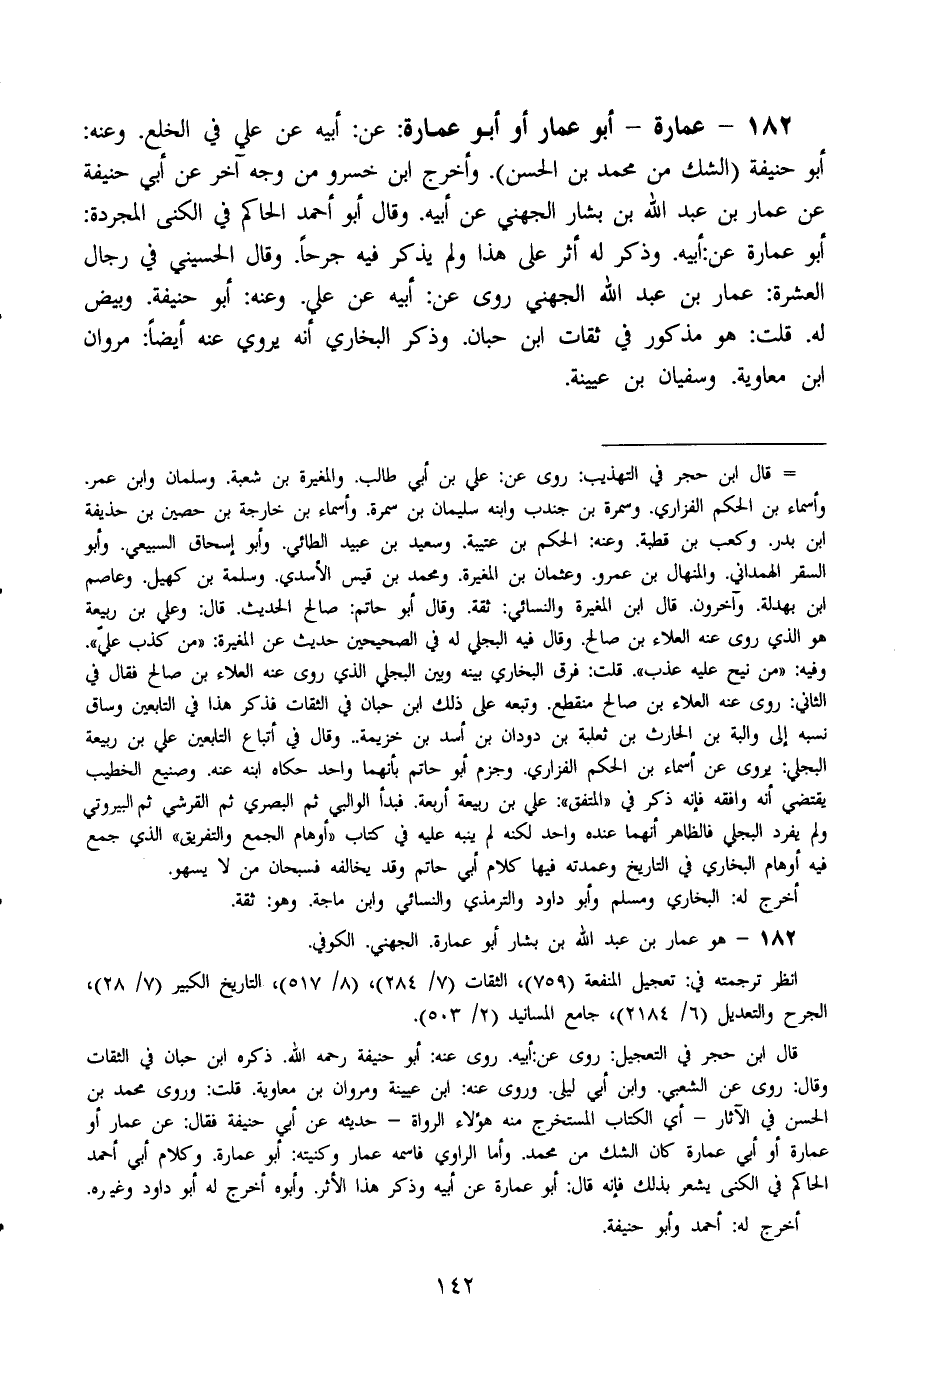 ١٨٢ - عمارة - أبو عمار أو أبو عمارة: عن: أبيه عن علي في الخلع. وعنه:
أبو حنيفة (الشك من محمد بن الحسن). وأخرج ابن خسرو من وجه آخر عن أبي حنيفة
عن عمار بن عبد الله بن بشار الجهني عن أبيه. وقال أبو أحمد الحاكم في الكنى المجردة:
أبو عمارة عن:أبيه. وذكر له أثر على هذا ولم يذكر فيه جرحاً. وقال الحسيني في رجال
العشرة: عمار بن عبد الله الجهني روى عن: أبيه عن علي. وعنه: أبو حنيفة. وبيض
له. قلت: هو مذكور في ثقات ابن حبان. وذكر البخاري أنه يروي عنه أيضاً: مروان
ابن معاوية. وسفيان بن عيينة.
= قال ابن حجر في التهذيب: روى عن: علي بن أبي طالب. والمغيرة بن شعبة. وسلمان وابن عمر.
وأسماء بن الحكم الفزاري. وسمرة بن جندب وابنه سليمان بن سمرة. وأسماء بن خارجة بن حصين بن حذيفة
ابن بدر. وكعب بن قطبة. وعنه: الحكم بن عتيبة. وسعيد بن عبيد الطائي. وأبو إسحاق السبيعي. وأبو
السقر الهمداني. والمنهال بن عمرو. وعثمان بن المغيرة. ومحمد بن قيس الأسدي. وسلمة بن كهيل. وعاصم
ابن بهدلة. وآخرون. قال ابن المغيرة والنسائي: ثقة. وقال أبو حاتم: صالح الحديث. قال: وعلي بن ربيعة
هو الذي روى عنه العلاء بن صالح. وقال فيه البجلي له في الصحيحين حديث عن المغيرة: «من كذب عليّ».
وفيه: «من نيح عليه عذب». قلت: فرق البخاري بينه وبين البجلي الذي روى عنه العلاء بن صالح فقال في
الثاني: روى عنه العلاء بن صالح منقطع. وتبعه على ذلك ابن حبان في الثقات فذكر هذا في التابعين وساق
نسبه إلى والبة بن الحارث بن ثعلبة بن دودان بن أسد بن خزيمة.. وقال في أتباع التابعين علي بن ربيعة
البجلي: يروى عن أسماء بن الحكم الفزاري. وجزم أبو حاتم بأنهما واحد حكاه ابنه عنه. وصنيع الخطيب
يقتضي أنه وافقه فإنه ذكر في «المتفق»: علي بن ربيعة أربعة. فبدأ الوالبي ثم البصري ثم القرشي ثم البيروتي
ولم يفرد البجلي فالظاهر أنهما عنده واحد لكنه لم ينبه عليه في كتاب «أوهام الجمع والتفريق» الذي جمع
فيه أوهام البخاري في التاريخ وعمدته فيها كلام أبي حاتم وقد يخالفه فسبحان من لا يسهو.
أخرج له: البخاري ومسلم وأبو داود والترمذي والنسائي وابن ماجة. وهو: ثقة.
١٨٢ - هو عمار بن عبد الله بن بشار أبو عمارة. الجهني. الكوفي.
انظر ترجمته في: تعجيل المنفعة (٧٥٩)، الثقات (٧/ ٢٨٤)، (٨/ ٥١٧)، التاريخ الكبير (٧/ ٢٨)،
الجرح والتعديل (٦/ ٢١٨٤)، جامع المسانيد (٢/ ٥٠٣).
قال ابن حجر في التعجيل: روى عن:أبيه. روى عنه: أبو حنيفة رحمه الله. ذكره ابن حبان في الثقات
وقال: روى عن الشعبي. وابن أبي ليلى. وروى عنه: ابن عيينة ومروان بن معاوية. قلت: وروى محمد بن
الحسن في الآثار - أي الكتاب المستخرج منه هؤلاء الرواة - حديثه عن أبي حنيفة فقال: عن عمار أو
عمارة أو أبي عمارة كان الشك من محمد. وأما الراوي فاسمه عمار وكنيته: أبو عمارة. وكلام أبي أحمد
الحاكم في الكنى يشعر بذلك فإنه قال: أبو عمارة عن أبيه وذكر هذا الأثر. وأبوه أخرج له أبو داود وغيره.
أخرج له: أحمد وأبو حنيفة.
١٤٢